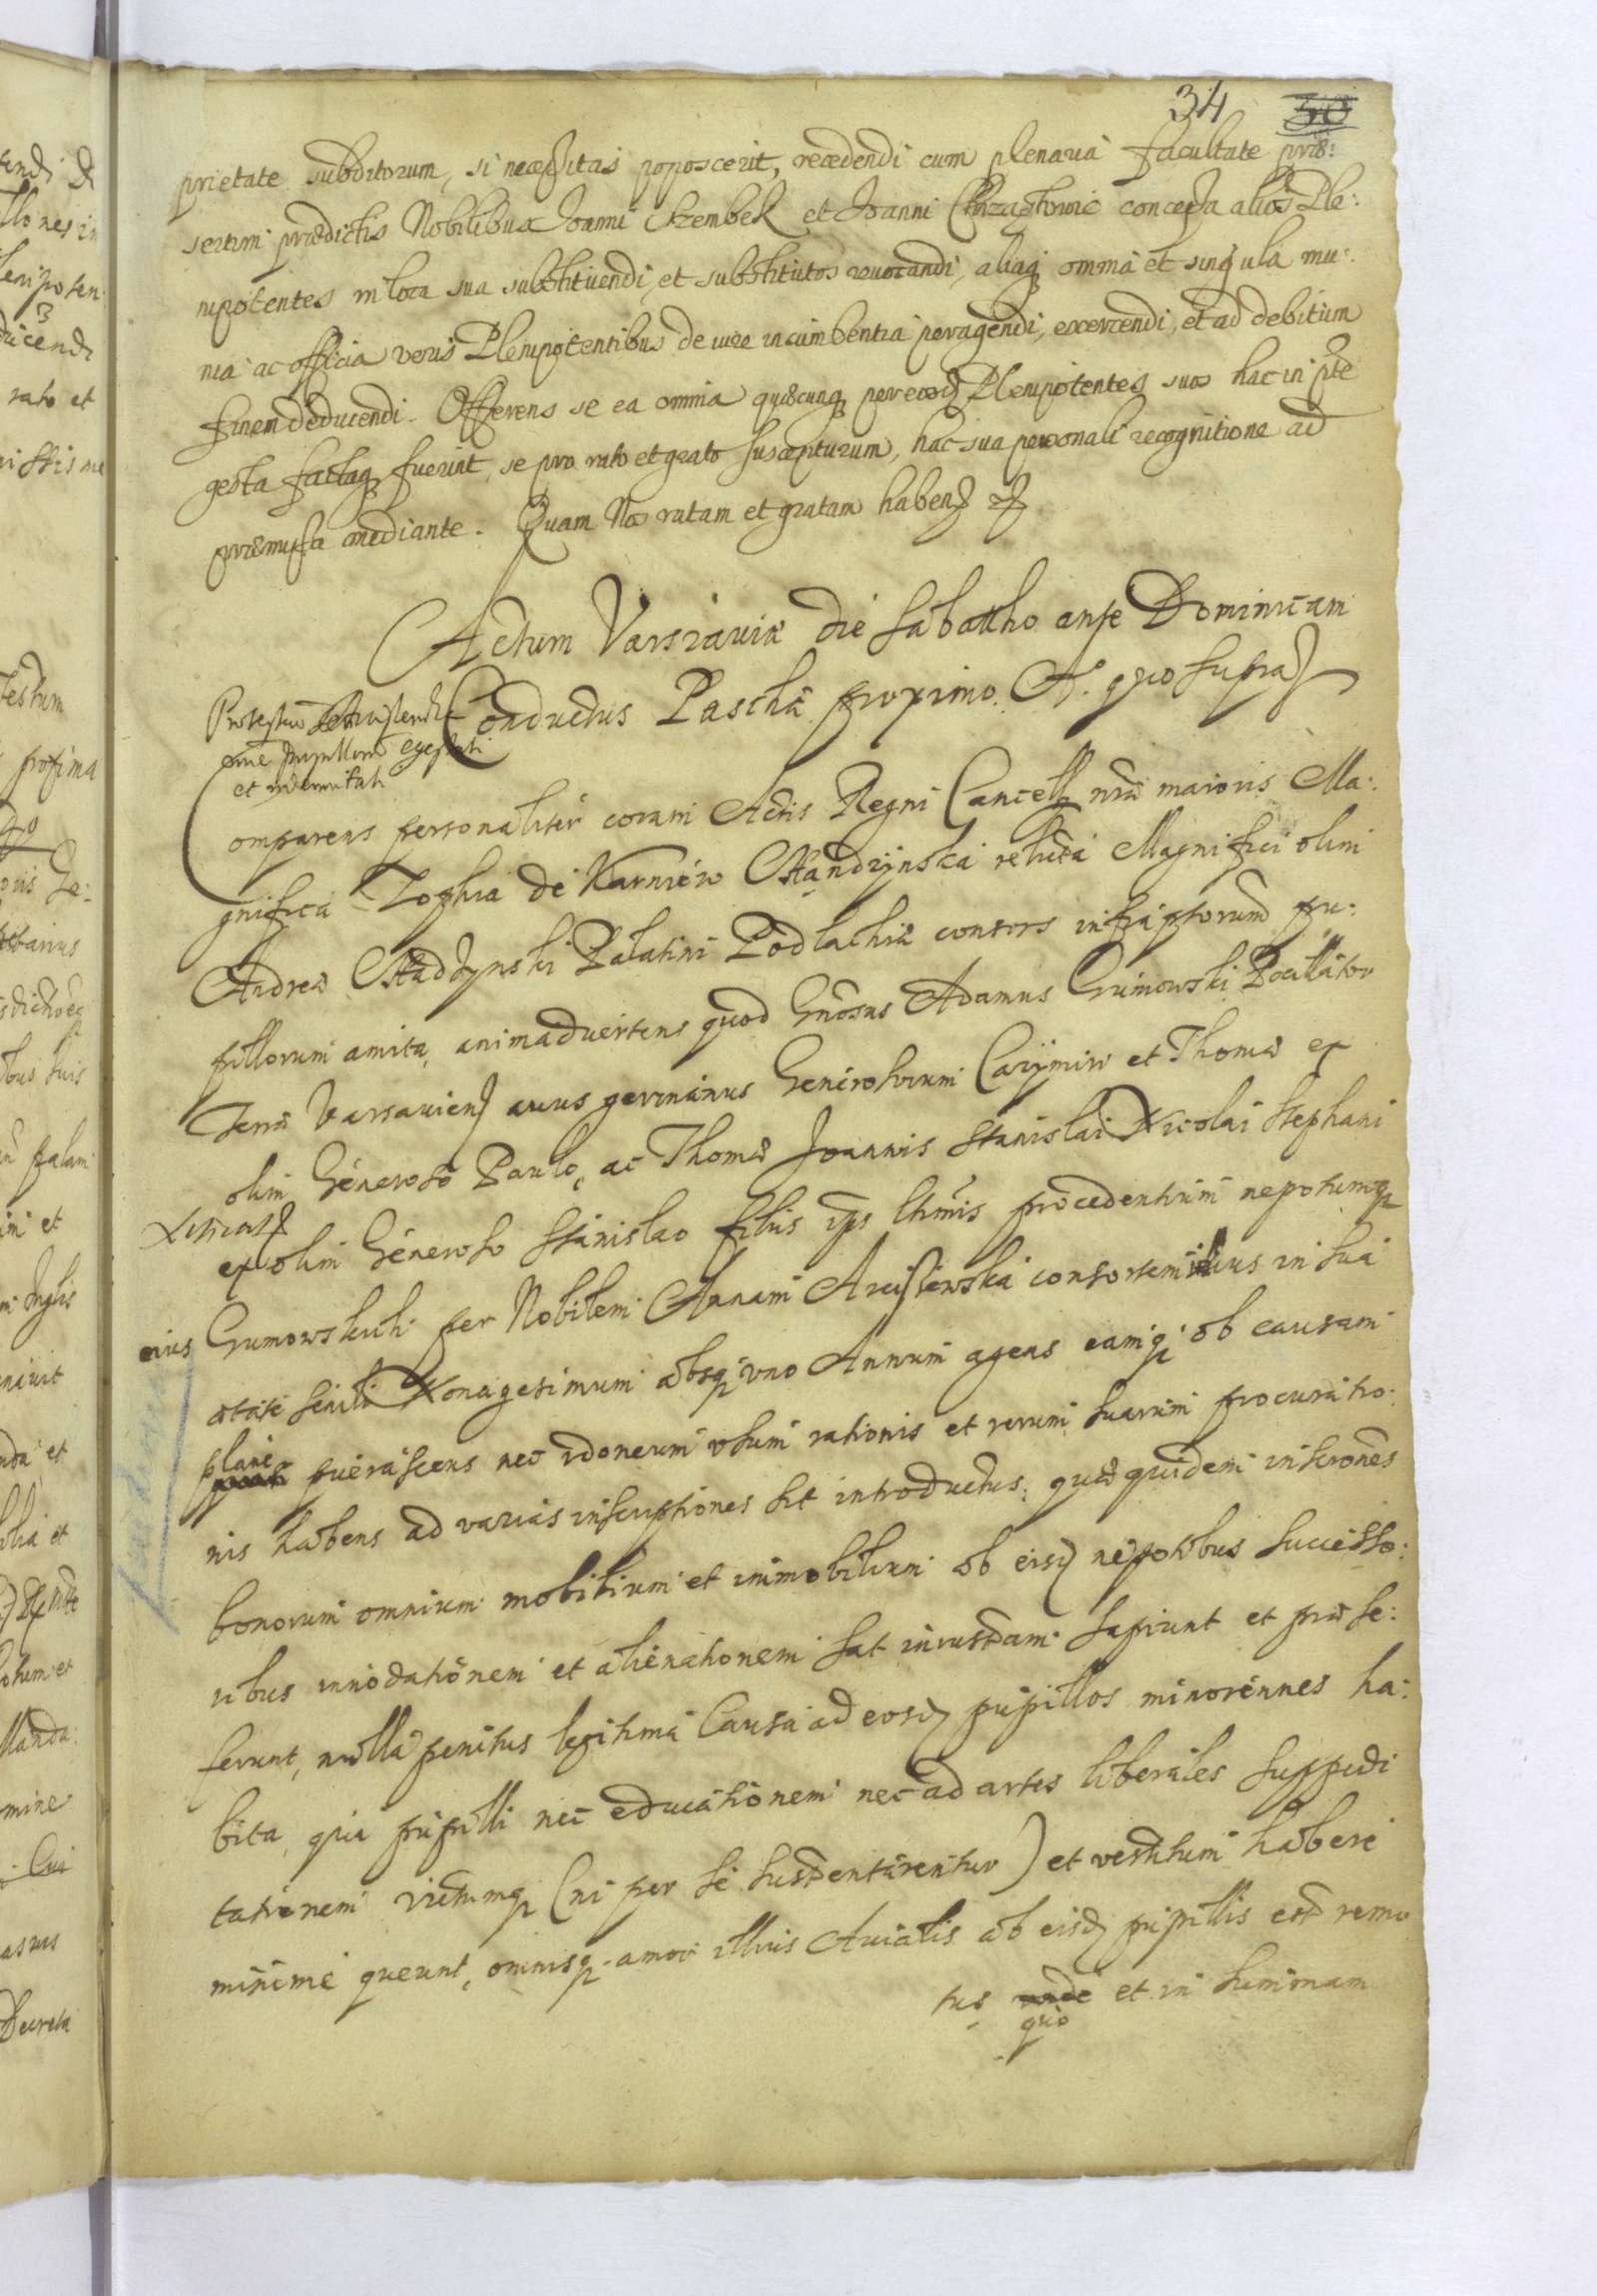 34 30
prietate subditorum, si necessitas poposcerit, recedendi cum plenaria facultate præ:
sertim prædictis Nobilibus Joanni Szembek et Joanni Chrzastowic concessa alios Ple:
nipotentes in loca sua substituendi, et substitutos reuocandi, aliaq omnia et singula mu:
nia ac officia veris Plenipotentibus de iure incumbentia peragendi, exercendi, et ad debitum
finem deducendi. Offerens se ea omnia quæcunq per eosd Plenipotentes suos hac in pte
gesta factaq fuerint, se pro rato et grato suscepturum, hac sua personali recognitione ad
præmissa mediante. Quam Nos ratam et gratam habend etc
Actum Varsaviæ die Sabatho ante Dominicam
Conductus Paschæ proximo. A. quo supra
pupillorum
et indemnitati
Comparens personaliter coram Actis Regni Cancell nræ maioris Ma:
gnifica Zophia de Karniow relicta Magnifici olim
Andreæ Palatini Podlachiæ consors infrascriptorum pu:
pillorum amita, animadvertens quod Gnosus Adamus Grimowski Pocillator
Terræ Varsavien avus germanus Generosorum Casimiri et Thomæ ex
olim Generoso Paulo, ac Thomæ Joannis Stanislai Nicolai Stephani
ex olim Generoso Stanislao filiis ips ltimis procedentium nepotumq
eius Grimowskich per Nobilem Annam Arciszewska consortem in sua
ætate senili Nonagesimum absq uno Annum agens eamq ob causam
plane puerascens nec idoneum usum rationis et rerum suarum procuratio:
nis habens ad varias inscriptiones sit introductus: quæ quidem inscrones
bonorum omnium mobilium et immobilium ab eisd nepotibus successo:
ribus innodationem et alienationem sat iniustam sapiunt et præ se:
ferunt, nulla penitus legitima Causa ad eosd pupillos minorennes ha:
bita, qui pupilli nec educationem nec ad artes liberales suppedi
tationem victumq (ni per se sustentarentur) et vestitum habere
minime queunt, omnisq amor illius Avialis ab eisd pupillis est remo
tus quo et in summam